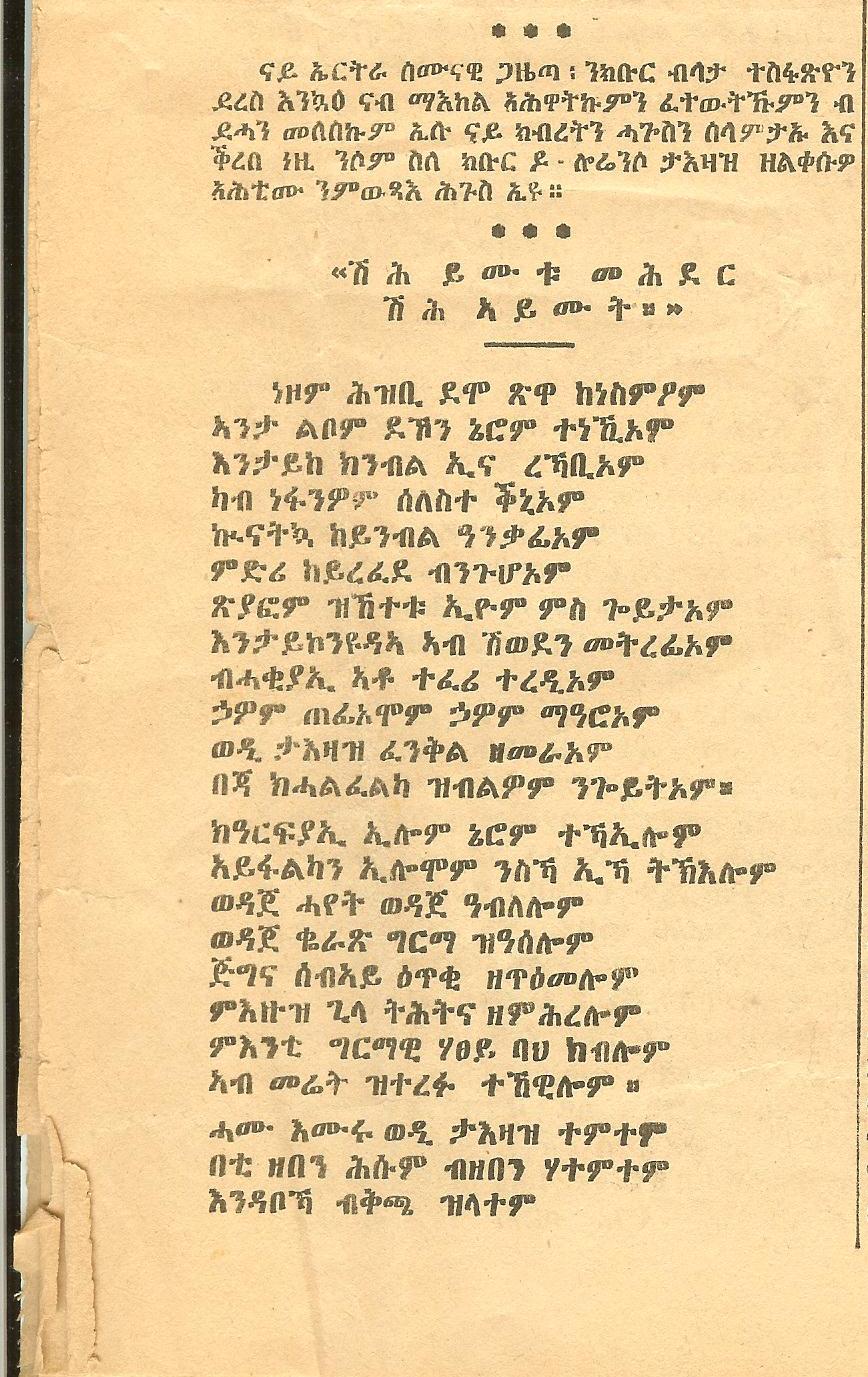 ናይ ኤርትራ ሰሙናዊ ጋዜጣ ፡ ንክቡር ብላታ ተስፋጽዮን
ደረስ እንኳዕ ናብ ማእከል ኣሕዋትኩምን ፈተውትኹምን ብ
ደሓን መለሰኩም ኢሉ ናይ ክብረትን ሓጐስን ሰላምታኡ እና
ቕረበ ነዚ ንሶም ስለ ክቡር ዶ·ሎሬንሶ ታእዛዝ ዘልቀሱዎ
ኣሕቲሙ ንምውጻእ ሕጉስ ኢዩ ።
«ሽሕ ይሙቱ መሕደር
ሽሕ ኣይሙት።»
ነዞም ሕዝቢ ደሞ ጽዋ ከነስምዖም
ኣንታ ልቦም ደኾን ኔሮም ተነኺኦም
እንታይከ ክንብል ኢና ረኻቢኦም
ካብ ነፋንዎም ሰለስተ ቕኒኦም
ኩናትኳ ከይንብል ዓንቃፊኦም
ምድሪ ከይረፈደ ብንጉሆኦም
ጽያፎም ዝኸተቱ ኢዮም ምስ ጐይታኦም
እንታይኮንዩዳኣ ኣብ ሽወደን መትረፊኦም
ብሓቂያኢ ኣቶ ተፈሪ ተረዲኦም
ኃዎም ጠፊኦሞም ኃዎም ማዓሮኦም
ወዲ ታእዛዝ ፈንቅል ዘመራኦም
በጃ ክሓልፈልካ ዝብልዎም ንጐይትኦም።
ክዓርፍያኢ ኢሎም ኔሮም ተኻኢሎም
ኣይፋልካን ኢሎሞም ንስኻ ኢኻ ትኽእሎም
ወዳጀ ሓየት ወዳጀ ዓብለሎም
ወዳጀ ቈራጽ ግርማ ዝዓሰሎም
ጅግና ሰብኣይ ዕጥቂ ዘጥዕመሎም
ምእዙዝ ጊላ ትሕትና ዘምሕረሎም
ምእንቲ ግርማዊ ሃፀይ ባህ ክብሎም
ኣብ መሬት ዝተረፉ ተኸዊሎም ።
ሓሙ እሙሩ ወዲ ታእዛዝ ተምተም
በቲ ዘበን ሕሱም ብዘበን ሃተምተም
እንዳቦኻ ብቅጫ ዝላተም